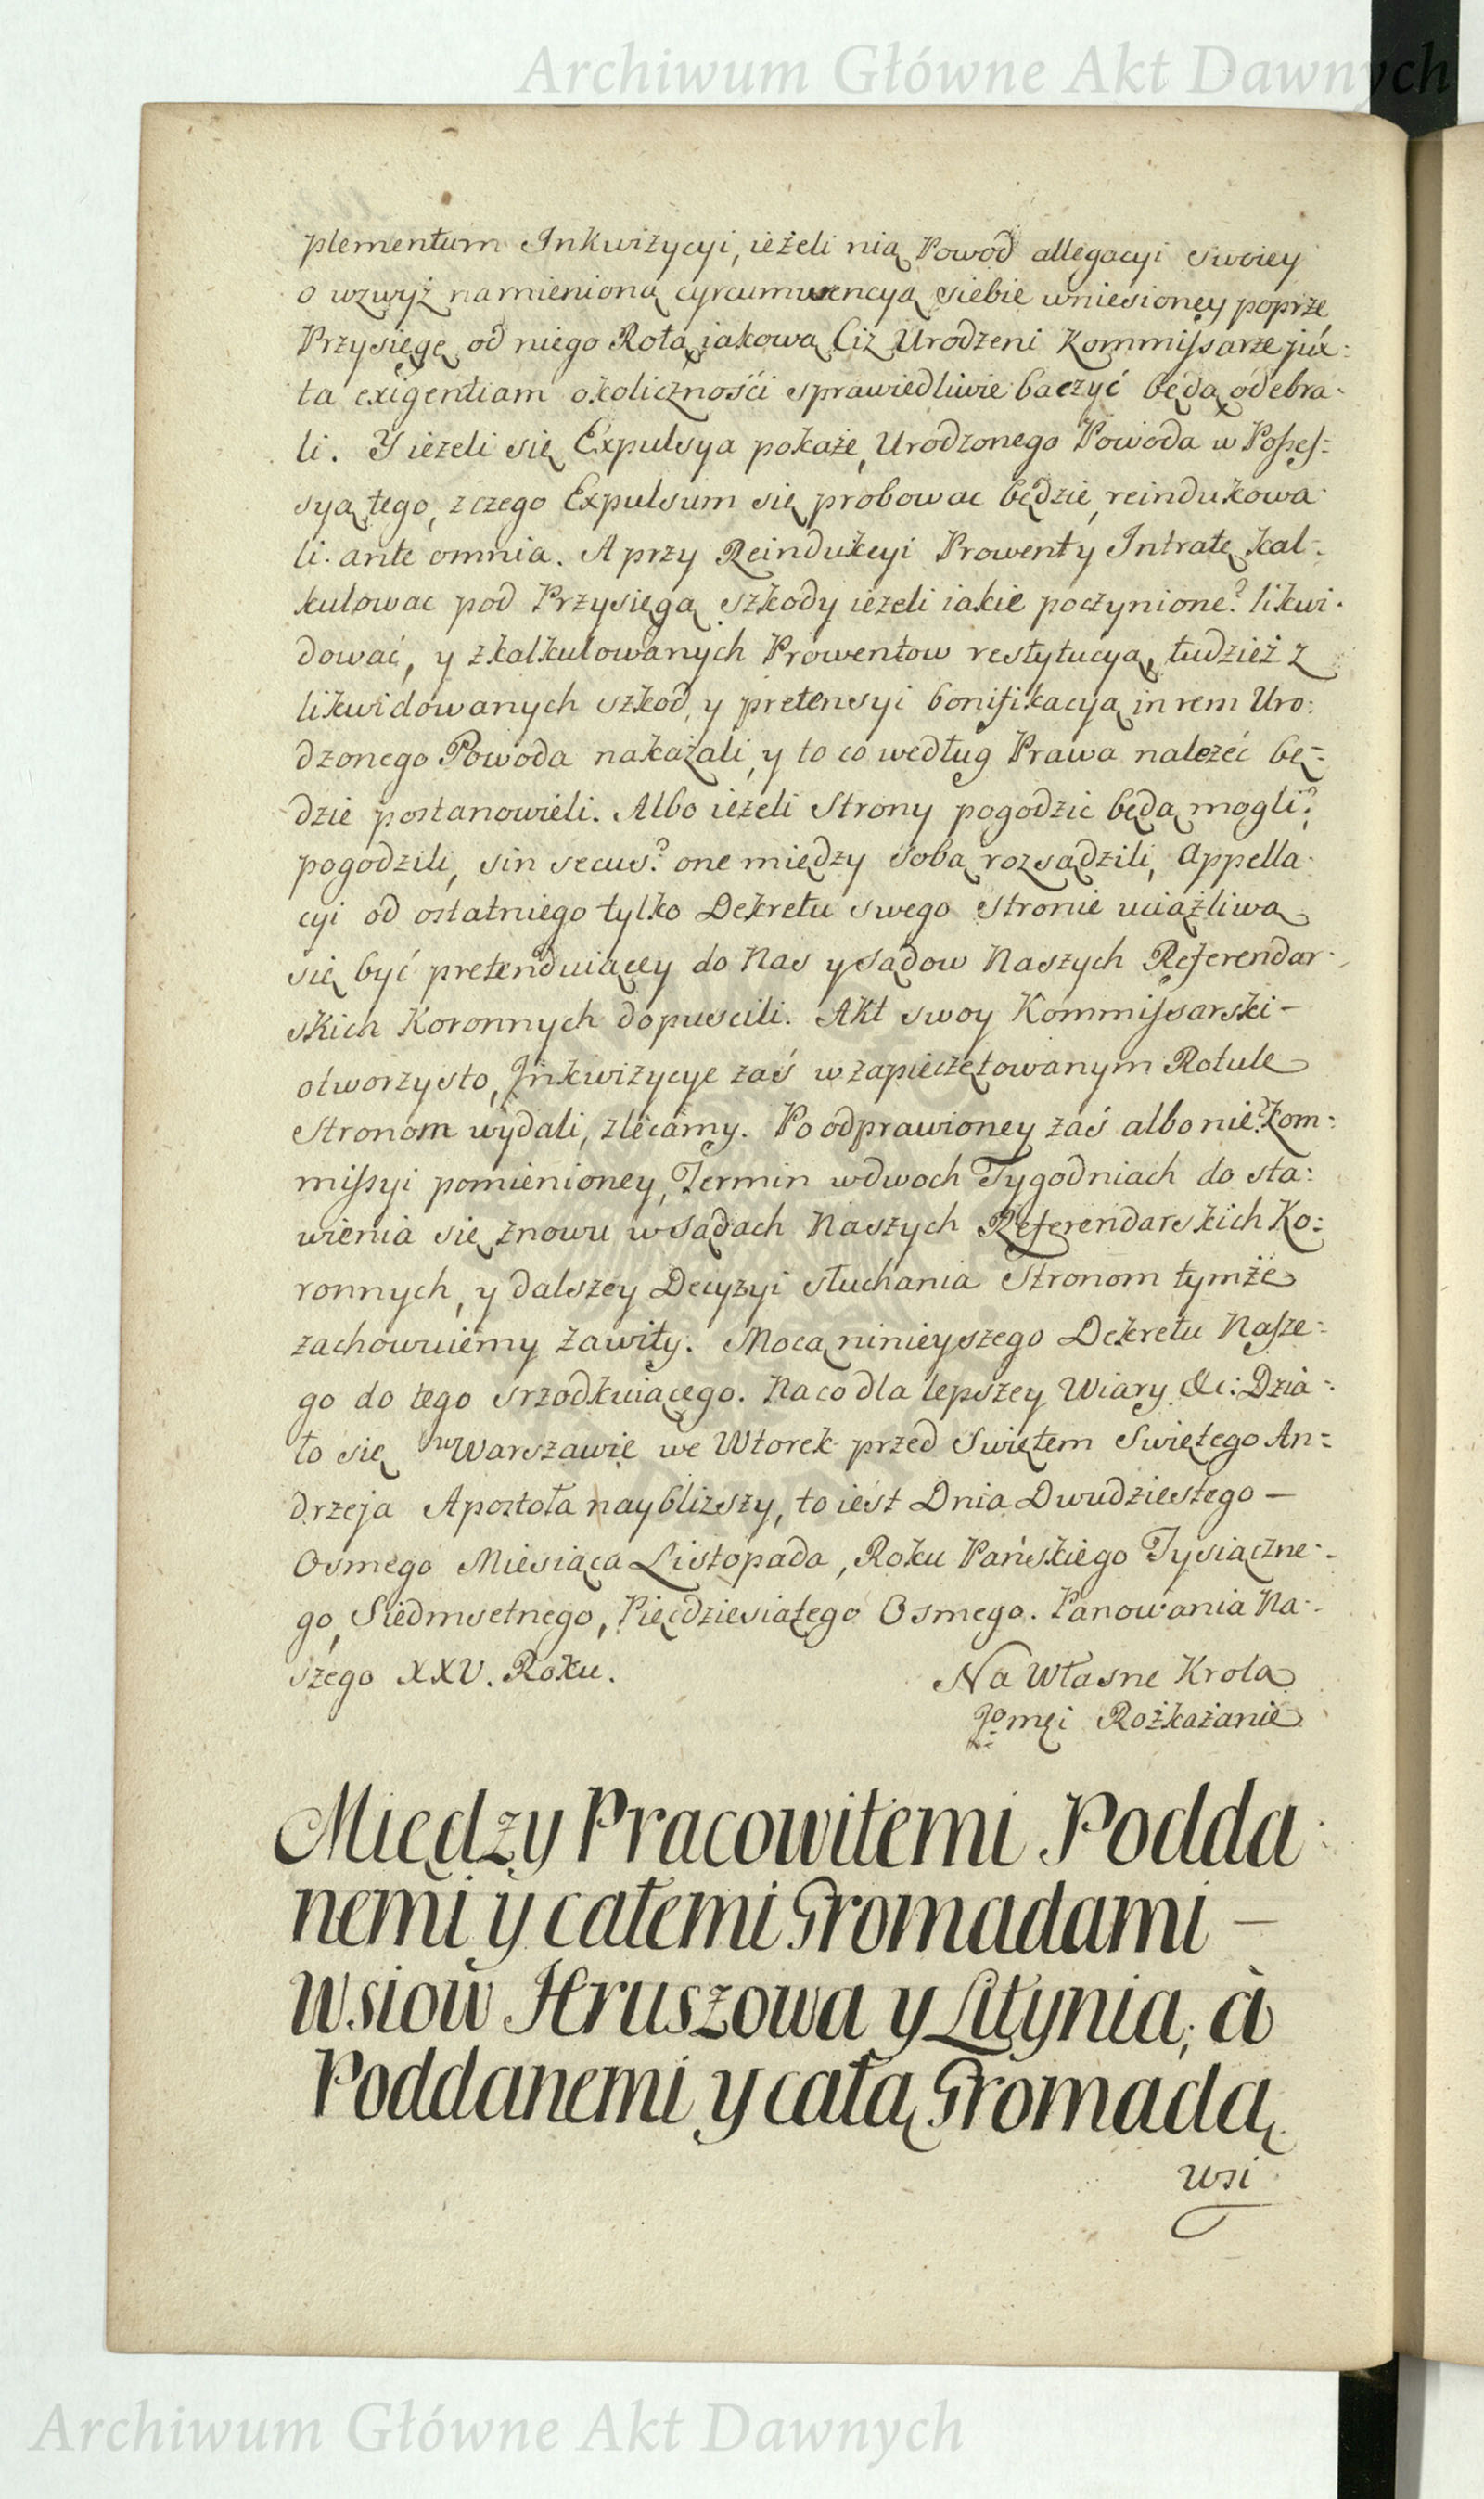 Archiwum Główne Akt Dawnych
plementum Inkwizycyi, ieżeli nią Powod allegacyi swoiey
o wzwyż namienioną cyrcumwencyą siebie wniesioney poprze,
Przysięgę od niego Rotą iakową Ciż Urodzeni Kommissarze jux:
ta exigentiam okolicznośći sprawiedliwie baczyć będą odebra-
li. Y ieżeli się Expulsya pokaże, Urodzonego Powoda w Posses=
syą tego, z czego Expulsum się probować będzie, reindukowa-
li ante omnia. A przy Reindukcyi Prowenty Intratę kal-
kulować pod Przysięgą szkody ieżeli iakie poczynione? likwi-
dować, y zkalkulowanych Prowentow restytucyą, tudzież z
likwidowanych szkod, y pretensyi bonifikacyą in rem Uro:
dzonego Powoda nakażali, y to co według Prawa należeć bę=
dzie postanowieli. Albo ieżeli Strony pogodzić będą mogli?
pogodzili, sin secus? one między sobą rozsądzili, Appella-
cyi od ostatniego tylko Dekretu swego stronie uciążliwą
się być pretenduiącey do Nas y sądow Naszych Referendar-
skich Koronnych dopuscili. Akt swoy Kommissarski —
otworzysto, Inkwizycye zaś w zapieczętowanym Rotule
Stronom wydali, zlecamy. Po odprawioney zaś albo nie? Kom=
missyi pomienioney, Termin w dwoch Tygodniach do sta:
wienia się znowu w sądach Naszych Referendarskich Ko:
ronnych, y dalszey Decyzyi słuchania Stronom tymże
zachowuiemy zawity. Mocą ninieyszego Dekretu Nasze=
go do tego srzodkuiącego. Na co dla lepszey Wiary &c: Dzia=
ło się w Warszawie we Wtorek przed Swiętem Swiętego An=
drzeja Apostoła naybliższy, to iest Dnia Dwudziestego —
Osmego Miesiąca Listopada, Roku Pańskiego Tysiączne-
go, Siedmsetnego, Pięćdziesiątego Osmego. Panowania Na-
szego XXV. Roku.
Na Własne Krola
Jomęi Rozkazanie
Między Pracowitemi Podda-
nemi y całemi Gromadami —
Wsiow Hruszowa y Litynia, à
Poddanemi y całą Gromadą
wsi
Archiwum Główne Akt Dawnych